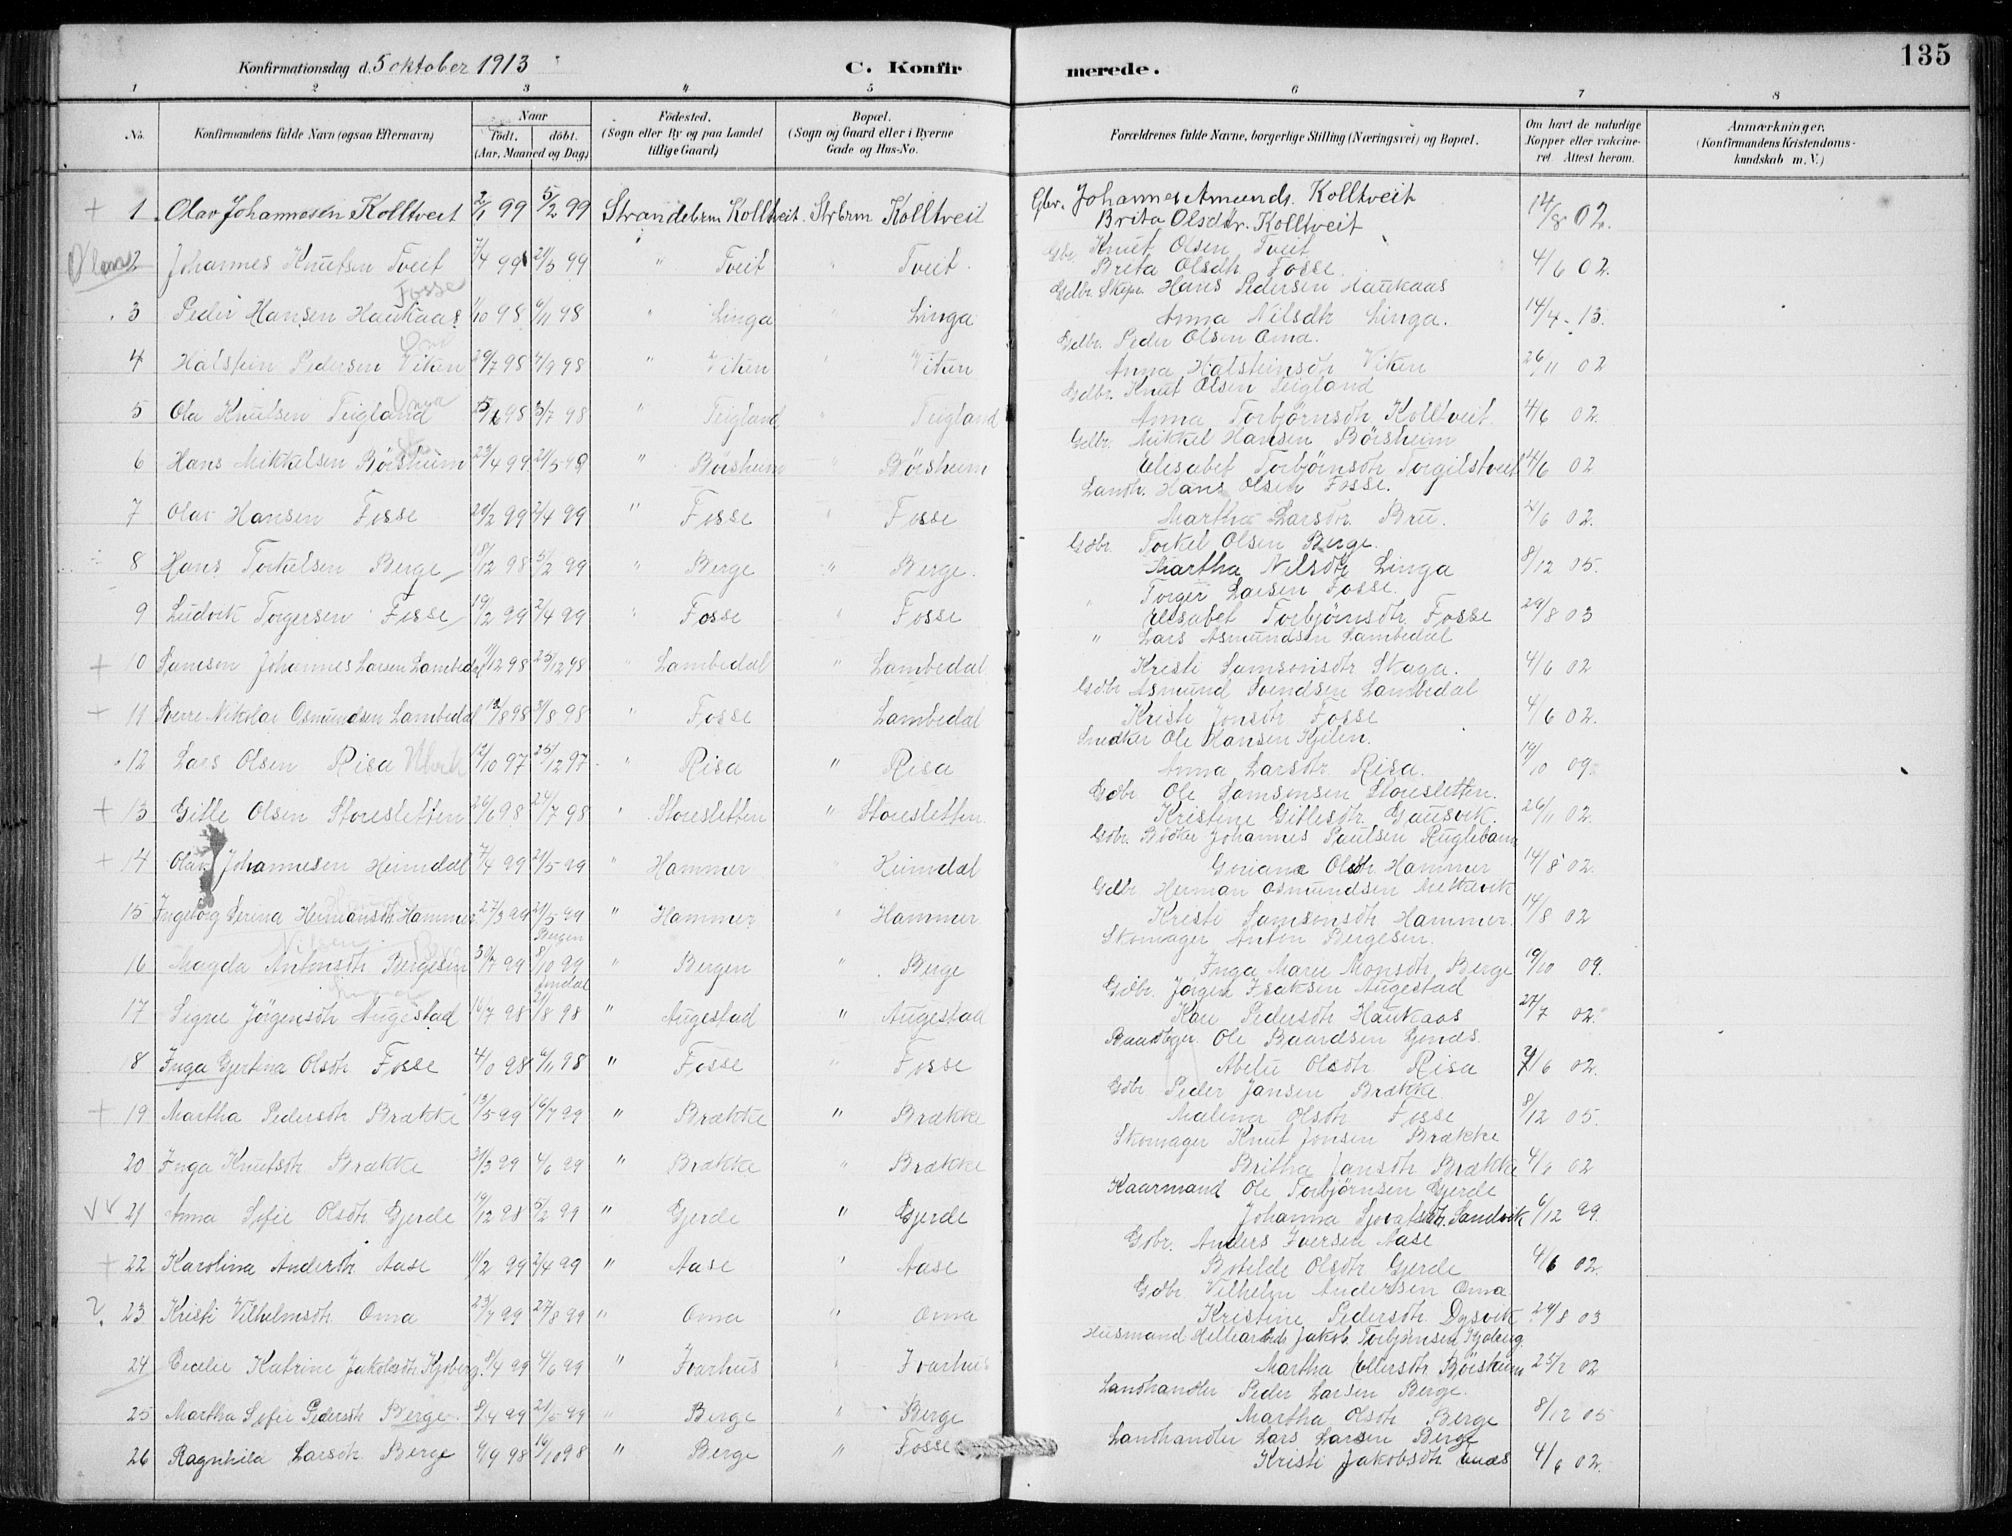 135
Konfirmationsdag d. 5 oktober 1913
C. Konfirmerede.
1 2 3 4 5 6 7 8
No. Konfirmandens fulde Navn (ogsaa Efternavn) Naar Födt. döbt. (Aar, Maaned og Dag) Födested. (Sogn eller By og paa Landet tillige Gaard) Bopæl. (Sogn og Gaard eller i Byerne Gade og Hus-No. Forældrenes fulde Navne, borgerlige Stilling (Næringsvei) og Bopæl. Om havt de naturlige Kopper eller vakcineret. Attest herom. Anmærkninger. (Konfirmandens Kristendomskundskab m. V.)
+ 1 Olav Johannesen Kolltveit 2/1 99 5/2 99 Strandebrm Kolltveit Strbrm Kolltveit Gbr. Johannes Amunds. Kolltveit
Brita Olsdtr. Kolltveit 14/8 02.
2 Johannes Knutsen Tveit 7/4 99 21/5 99 " Tveit Tveit Gbr. Knut Olsen Tveit
Brita Olsdtr Fosse 4/6 02.
Fosse
3 Peder Hansen Haukaas 1/10 98 6/11 98 " Linga Linga Gdbr. Skpr. Hans Pedersen Haukaas
Anna Nilsdtr Linga. 14/4 - 13.
4 Halstein Pedersen Viken 29/7 98 4/9 98 " Viken Viken Gdbr. Peder Olsen Oma.
Anna Halsteinsdtr Viken 26/11 02
5 Ola Knutsen Teigland 98 3/7 98 " Teigland Teigland Gdbr. Knut Olsen Teigland
Anna Torbjörnsdtr Kolltveit 4/6 02
6 Hans Mikkelsen Börsheim 23/4 99 21/5 99 " Börsheim Börsheim Gdbr. Mikkel Hansen Börsheim
Elisabet Torbjörnsdtr Torgilstveit 4/6 02
7 Olav Hansen Fosse 20/2 99 2/4 99 " Fosse Fosse Landh. Hans Olsen Fosse.
Martha Larsdtr Bru. 4/6 02.
8 Hans Torkelsen Berge 18/12 98 5/2 99 " Berge " Berge. Gdbr. Torkel Olsen Berge.
Martha Nelsdtr Linga 8/12 05.
9 Ludvik Torgersen Fosse 19/2 99 2/4 99 " Fosse " Fosse " Torger Larsen Fosse.
Elisabet Torbjörnsdtr Fosse 29/8 03
+ 10 Samson Johannes Larsen Lambedal 11/12 98 25/12 98 " Lambedal " Lambedal " Lars Asmundsen Lambedal
Kristi Samsonsdtr Skaga. 4/6 02
11 Sverre Nikolai Osmundsen Lambedal 12/8 98 31/8 98 " Fosse Lambedal Gdbr Asmund Svendsen Lambedal
Kristi Jonsdtr Fosse 4/6 02.
12 Lars Olsen Risa 12/10 97 25/12 97 " Risa " Risa Snedker Ole Hansen Kjilen.
Anna Larsdtr. Risa. 19/10 09.
+ 13 Gitle Olsen Storesletten 26/6 98 24/7 98 " Storesletten " Storesletten Gdbr Ole Samsonsen Storesletten.
Kristine Gitlesdtr Gausvik. 26/11 02.
+ 14 Olav Johannesen Heimdal 7/4 99 21/5 99 " Hammer Heimdal Gdbr. Bödker Johannes Paulsen
Goriana Olsdtr Hammer 14/8 02.
15 Ingeborg Serina Hermansdtr Hammer 27/3 99 21/5 99 " Hammer " Hammer Gdbr Herman Osmundsen
Kristi Samsonsdtr Hammer. 14/8 02
Nilsen. Bergen
16 Magda Antonsdtr Bergesen 99 8/10 99 " Bergen Berge Skomager Anton Bergesen.
Inga Marie Monsdtr Berge 19/10 09.
17 Signe Jörgensdtr Augestad 16/7 98 21/8 98 " Augestad " Augestad Gdbr. Jörgen Isaksen Augestad
Kari Pedersdtr Haukaas 27/7 02.
18 Inga Gjertina Olsdtr Fosse 4/10 98 6/11 98 " Fosse " Fosse Ole Baardsen
Abelu Olsdtr Risa 4/6 02.
+ 19 Martha Pedersdtr Brække 13/5 99 16/7 99 " Brække " Brække Gdbr Peder Jansen Brække.
Malena Olsdtr Fosse 8/12 05.
20 Inga Knutsdtr Brække 21/3 99 4/6 99 " Brække " Brække Skomager Knut Jonsen Brække
Britha Jansdtr Brække 4/6 02
21 Anna Sofie Olsdtr Gjerde 19/12 98 5/2 99 " Gjerde " Gjerde Kaarmand Ole Torbjörnsen Gjerde
Johanna Sjovatsdtr. Sandvik 6/12 99.
+ 22 Karolina Andersdtr Aase 11/2 99 2/4 99 " Aase " Aase Gdbr. Anders Iversen Aase
Botilde Olsdtr Gjerde 4/6 02.
23 Kristi Vilhelmsdtr Oma 23/7 99 27/8 99 " Oma " Oma Gdbr Vilhelm Andersen Oma
Kristine Pedersdtr Dysvik 29/8 03
24 Cecilie Katrine Jakobsdtr Kjöberg. 8/4 99 4/6 99 " Ivarhus " Ivarhus Husmand Jakob Torbjörnsen
Martha Ellersdtr Börsheim 25/2 02
25 Martha Sofie Pedersdtr Berge 9/4 99 21/5 99 " Berge " Berge Landhandler Peder Larsen Berge.
Martha Olsdtr Berge 8/12 05
26 Ragnhild Larsdtr. Berge 4/9 98 16/10 98 " Berge " Fosse Landhandler Lars Larsen Berge
Kristi Jakobsdtr 4/6 02.